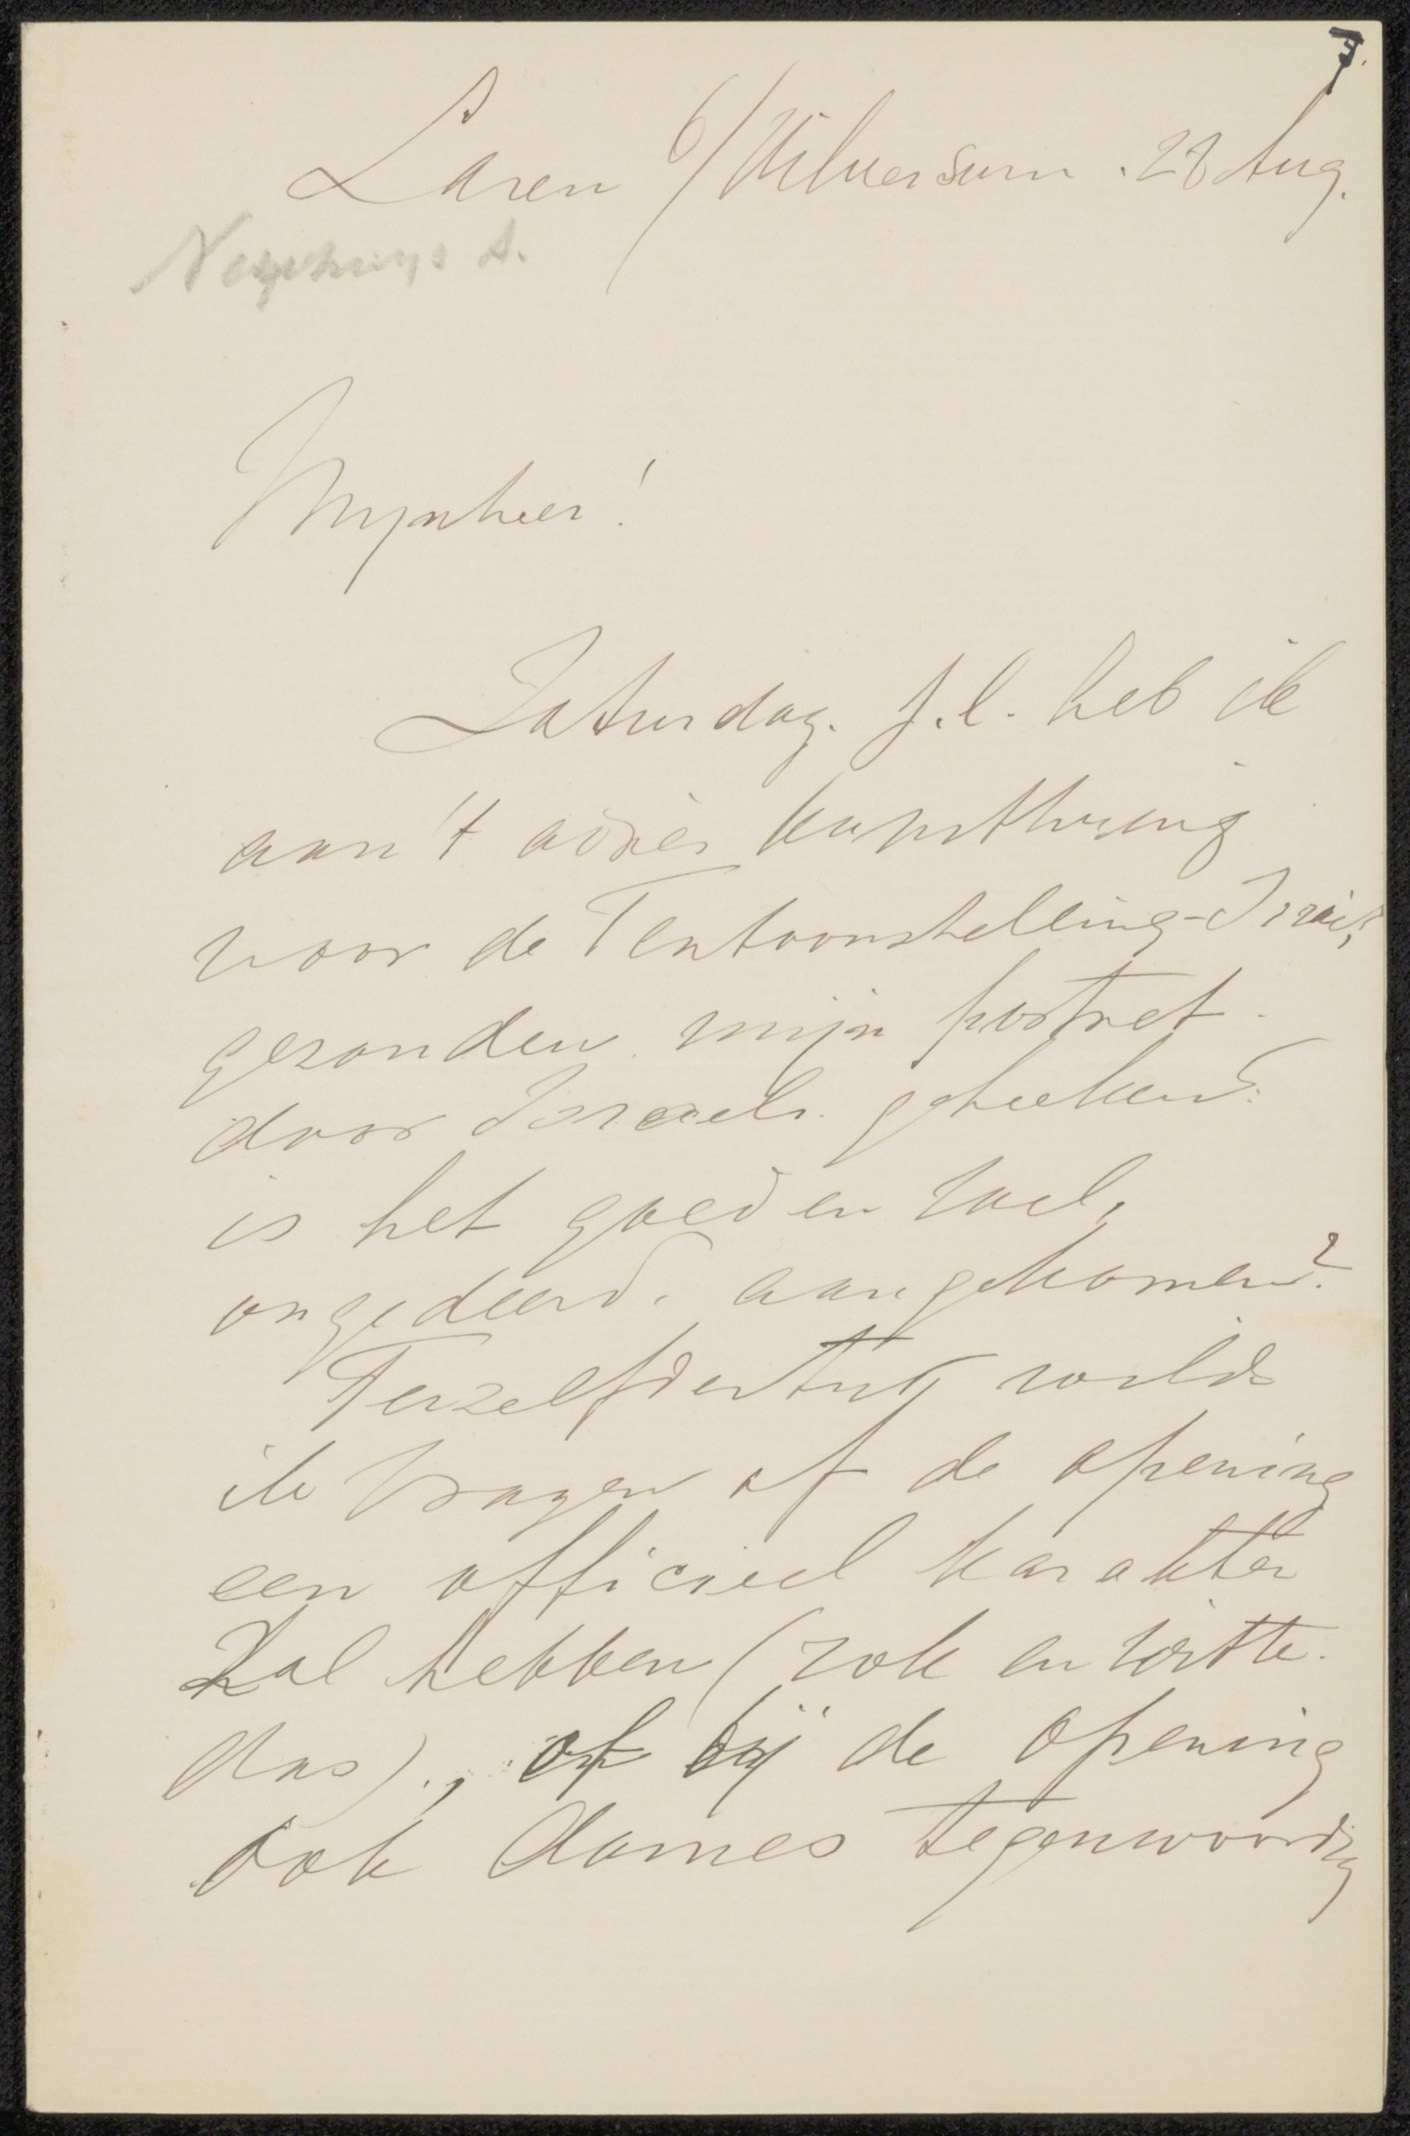 7.
Laren b/Hilversum. 28 Aug.
Neuhuys A.
Mynheer!
Zaturdag. j.l. heb ik
aan 't adres kunstkring
voor de Tentoonstelling-Israëls
gezonden mijn portret.
door Israels. geteekend.
is het goed en wel,
ongedeerd. aangekomen?
Terzelfdertijd wilde
ik vragen of de opening
een officieel karakter
zal hebben (rok en witte.
das)., of bij de opening
ook dames tegenwoordig